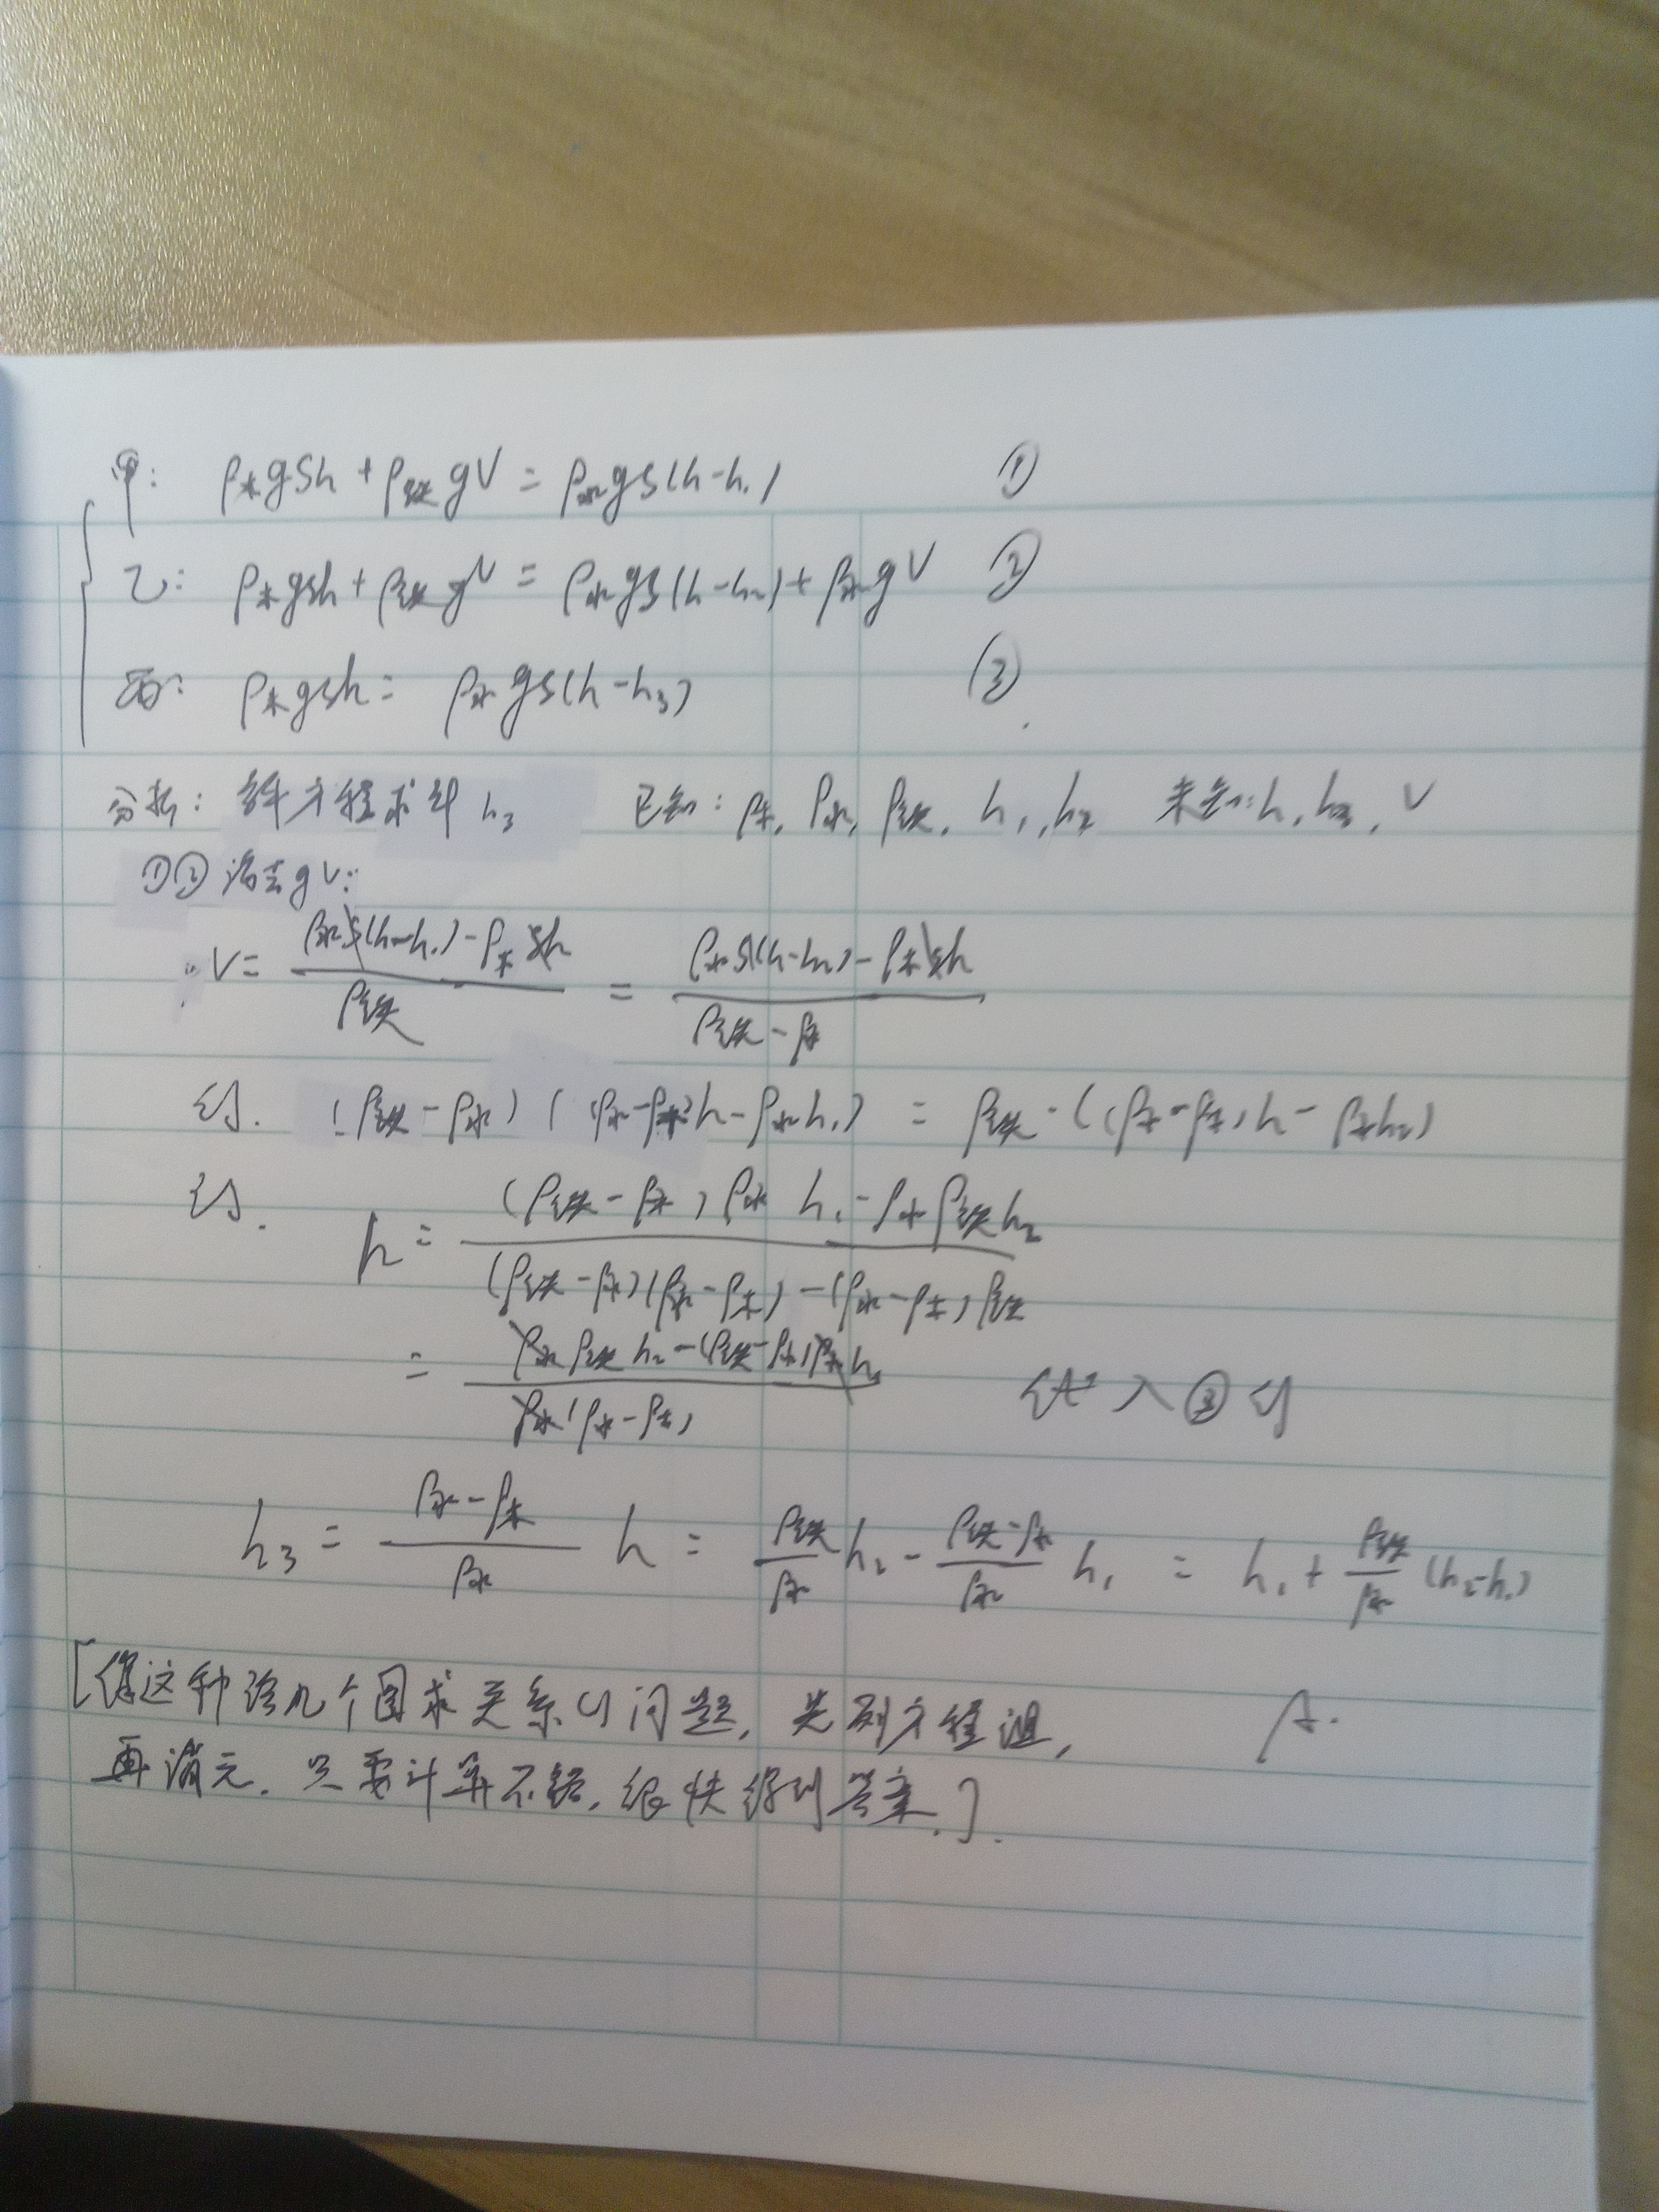 甲: ρ木gSh + ρ铁gV = ρ水gS(h-h₁) ①
乙: ρ木gSh + ρ铁gV = ρ水gS(h-h₂) + ρ水gV ②
丙: ρ木gSh = ρ水gS(h-h₃) ③
分析: 解方程求纤 h₃ 已知: ρ木, ρ水, ρ铁, h₁, h₂ 未知: h, h₃, V
①② 消去gV:
∴ V = (ρ水S(h-h₁) - ρ木Sh)/ρ铁 = (ρ水S(h-h₂) - ρ木Sh)/(ρ铁-ρ水)
得. (ρ铁-ρ水)((ρ水-ρ木)h - ρ水h₁) = ρ铁·((ρ水-ρ木)h - ρ水h₂)
得. h = ((ρ铁-ρ水)ρ水h₁ - ρ水ρ铁h₂)/((ρ铁-ρ水)(ρ水-ρ木) - (ρ水-ρ木)ρ铁)
= (ρ水ρ铁h₂ - (ρ铁-ρ水)ρ水h₁)/(ρ水(ρ水-ρ木)) 代入③得
h₃ = (ρ水-ρ木)/ρ水 h = ρ铁/ρ水 h₂ - (ρ铁-ρ水)/ρ水 h₁ = h₁ + ρ铁/ρ水 (h₂-h₁)
[像这种给几个图求关系的问题, 先列方程组, A.
再消元. 只要计算不错, 很快得到答案.].